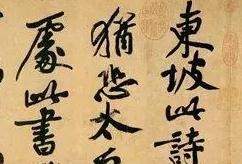 東坡此詩
猶恐太
處此書